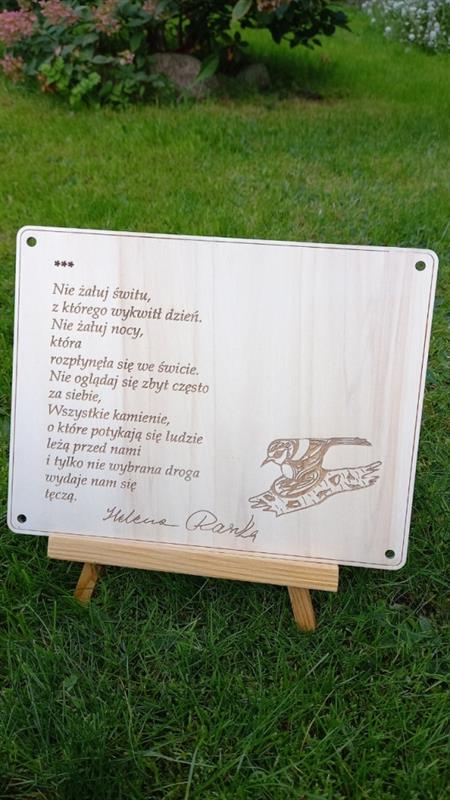 ***
Nie żałuj świtu,
z którego wykwitł dzień.
Nie żałuj nocy,
która
rozpłynęła się we świcie.
Nie oglądaj się zbyt często
za siebie,
Wszystkie kamienie,
o które potykają się ludzie
leżą przed nami
i tylko nie wybrana droga
wydaje nam się
tęczą.
Helena Raszka